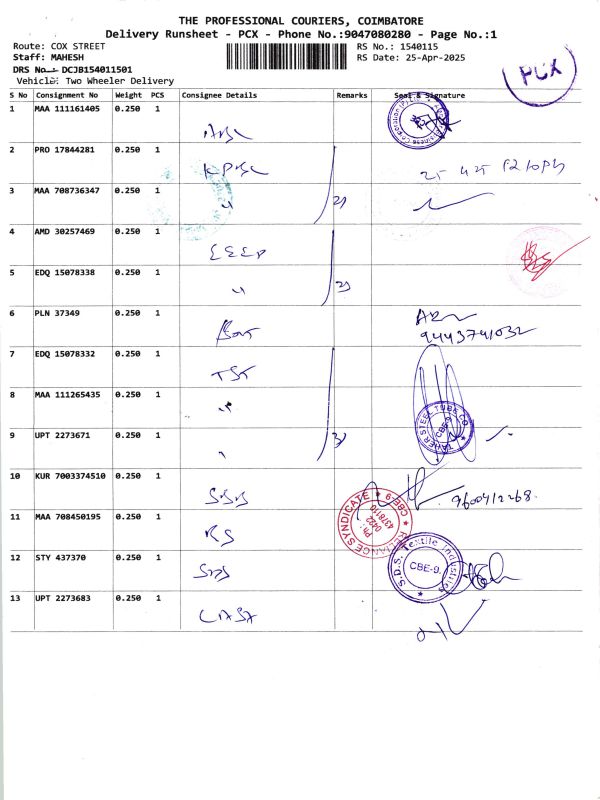 THE PROFESSIONAL COURIERS, COIMBATORE
Delivery Runsheet - PCX - Phone No.:9047080280 - Page No.:1
Route: COX STREET
RS No.: 1540115
Staff: MAHESH
RS Date: 25-Apr-2025
DRS No.: DCJB154011501
Vehicle: Two Wheeler Delivery
PCX
S No Consignment No Weight PCS Consignee Details Remarks Seal & Signature
1 MAA 111161405 0.250 1
2 PRO 17844281 0.250 1
3 MAA 708736347 0.250 1 "
4 AMD 30257469 0.250 1
5 EDQ 15078338 0.250 1 "
6 PLN 37349 0.250 1
9443741032
7 EDQ 15078332 0.250 1 TST
8 MAA 111265435 0.250 1 "
TAHER STEEL TUBE CO. CBE-9
9 UPT 2273671 0.250 1
10 KUR 7003374510 0.250 1 SSB 9600412268.
RELIANCE SYNDICATE CBE-9 Ph: 0422 4378110
11 MAA 708450195 0.250 1 RS
12 STY 437370 0.250 1 SDS
S.D.S. Textile Industries CBE-9.
13 UPT 2273683 0.250 1